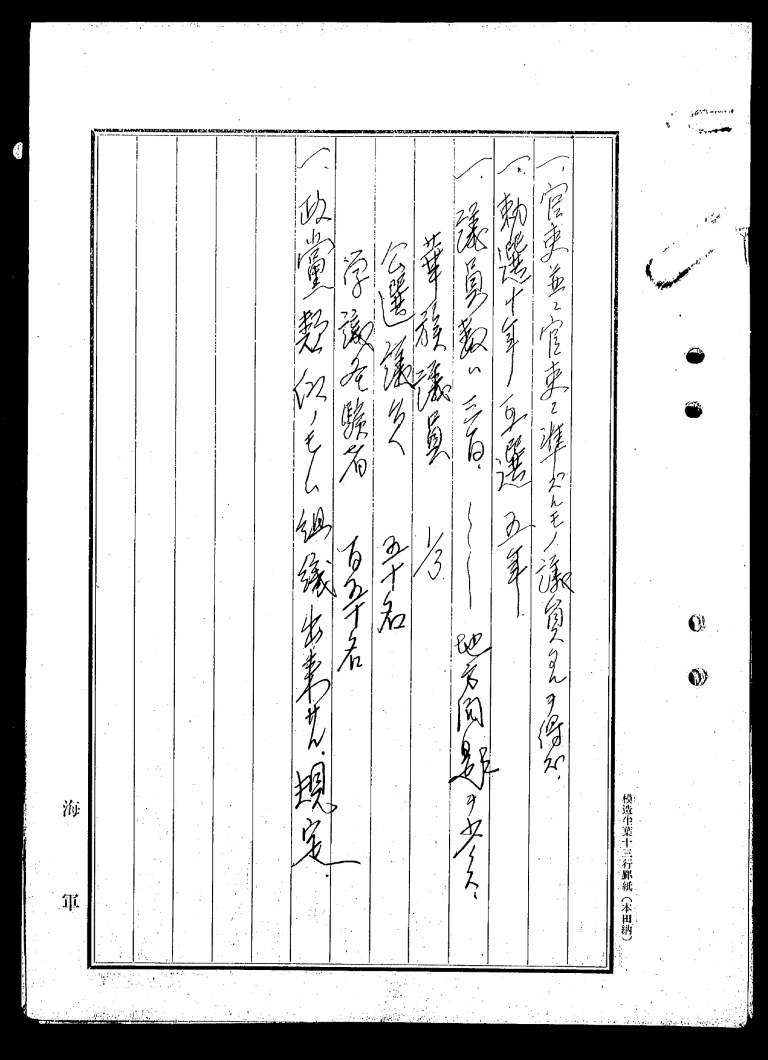 一、官吏並ニ官吏ニ準ズルモノ議員タルヲ得ズ、
一、勅選十年ノ互選五年
一、議員数ハ三百、 地方同県ヲ
華族議員 1/3
公選議員 五十名
学識経験者 百五十名
一、政黨類似ノモノ組織出来サル規定
海軍
模造半葉十三行罫紙(本田納)